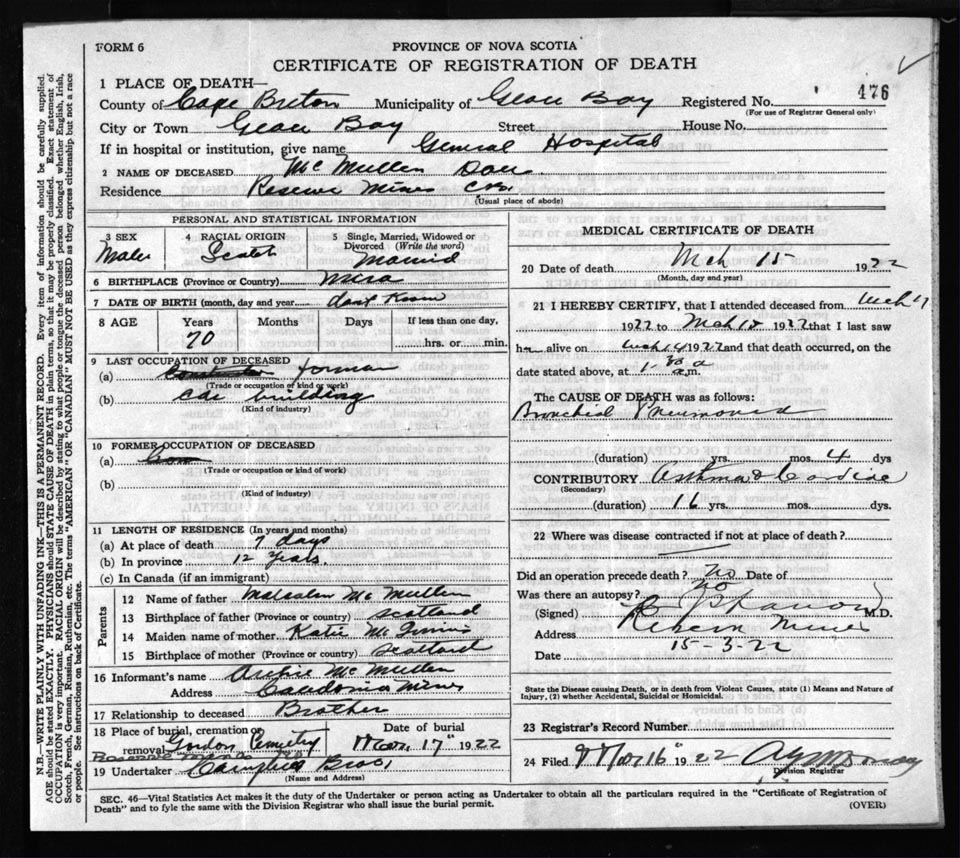 FORM 6
PROVINCE OF NOVA SCOTIA
CERTIFICATE OF REGISTRATION OF DEATH
N.B.—WRITE PLAINLY WITH UNFADING INK—THIS IS A PERMANENT RECORD. Every item of information should be carefully supplied.
AGE should be stated EXACTLY. PHYSICIANS should STATE CAUSE OF DEATH in plain terms, so that it may be properly classified. Exact statement of
OCCUPATION is very important. RACIAL ORIGIN will be described by stating to what people or tongue the deceased person belonged whether English, Irish,
Scotch, French, German, Russian, Ruthenian, etc. The terms "AMERICAN" OR "CANADIAN" MUST NOT BE USED as they express citizenship but not a race
or people. See instructions on back of Certificate.
1 PLACE OF DEATH—
County of Cape Breton Municipality of Glace Bay Registered No. 476
(For use of Registrar General only)
City or Town Glace Bay Street House No.
If in hospital or institution, give name General Hospital
2 NAME OF DECEASED McMullen Dan
Residence Reserve Mines C.B.
(Usual place of abode)
PERSONAL AND STATISTICAL INFORMATION
3 SEX 4 RACIAL ORIGIN 5 Single, Married, Widowed or
Divorced (Write the word)
Male Scotch Married
6 BIRTHPLACE (Province or Country) Mira
7 DATE OF BIRTH (month, day and year) dont Know
8 AGE Years Months Days If less than one day,
70 hrs. or min.
9 LAST OCCUPATION OF DECEASED
(a) forman
(Trade or occupation or kind of work)
(b) Car building
(Kind of industry)
10 FORMER OCCUPATION OF DECEASED
(a)
(Trade or occupation or kind of work)
(b)
(Kind of industry)
11 LENGTH OF RESIDENCE (In years and months)
(a) At place of death 7 days
(b) In province 12 years.
(c) In Canada (if an immigrant)
Parents
12 Name of father Malcolm McMullen
13 Birthplace of father (Province or country) Scotland
14 Maiden name of mother Katie McGinnis
15 Birthplace of mother (Province or country) Scotland
16 Informant's name Archie McMullen
Address Caledonia Mines
17 Relationship to deceased Brother
18 Place of burial, cremation or Date of burial
removal Gordon Cemetery Mar 17" 1922
19 Undertaker Campbell Bros.
(Name and Address)
MEDICAL CERTIFICATE OF DEATH
20 Date of death Mch 15 1922
(Month, day and year)
21 I HEREBY CERTIFY, that I attended deceased from Mch
1922 to Mch 15 1922 that I last saw
h alive on Mch 14 1922 and that death occurred, on the
date stated above, at a.m.
The CAUSE OF DEATH was as follows:
Bronchial Pneumonia
(duration) yrs. mos. 4 dys
CONTRIBUTORY Asthma & Cardiac
(Secondary)
(duration) 16 yrs. mos. dys.
22 Where was disease contracted if not at place of death?
Did an operation precede death? No Date of
Was there an autopsy? no
(Signed) M.D.
Address Reserve Mines
Date 15-3-22
State the Disease causing Death, or in death from Violent Causes, state (1) Means and Nature
of Injury, (2) whether Accidental, Suicidal or Homicidal.
23 Registrar's Record Number
24 Filed Mar 16" 1922
Division Registrar
SEC. 46—Vital Statistics Act makes it the duty of the Undertaker or person acting as Undertaker to obtain all the particulars required in the "Certificate of Registration of
Death" and to fyle the same with the Division Registrar who shall issue the burial permit.
(OVER)